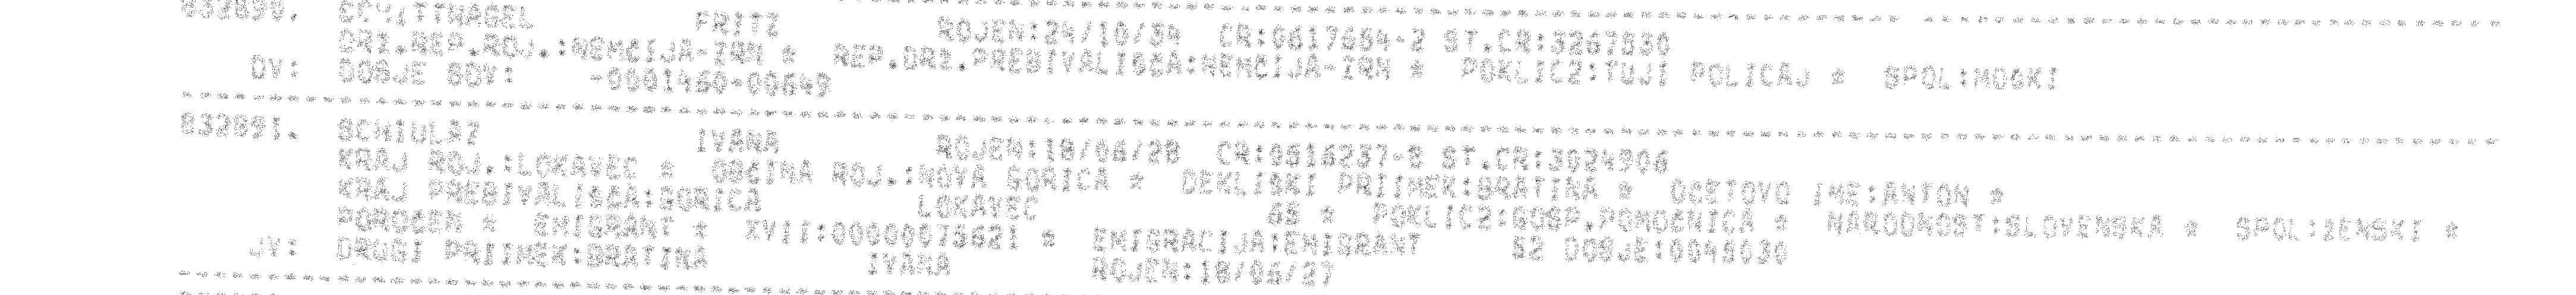 832890. SCHLITTNAGEL FRITZ ROJEN:24/10/34 CR:0617684-2 ST.CR:3267830
DRZ.REP.ROJ.:NEMCIJA-ZRN * REP.DRZ.PREBIVALISCA:NEMCIJA-ZRN * POKLIC2:TUJI POLICAJ * SPOL:MOSKI
DV: DOSJE SDV: -0001460-00649
832891. SCHIULAZ IVANA ROJEN:18/06/28 CR:0816237-8 ST.CR:3024906
KRAJ ROJ.:LOKAVEC * OBCINA ROJ.:NOVA GORICA * DEKLISKI PRIIMEK:BRATINA * OCETOVO IME:ANTON *
KRAJ PREBIVALISCA:GORICA LOKAVEC 68 * POKLIC2:GOSP.POMOCNICA * NARODNOST:SLOVENSKA * SPOL:ZENSKI *
POROCEN * EMIGRANT * XVII:00000075621 * EMIGRACIJA:EMIGRANT S2 DOSJE:0048030
DV: DRUGI PRIIMEK:BRATINA IVANA ROJEN:18/06/27